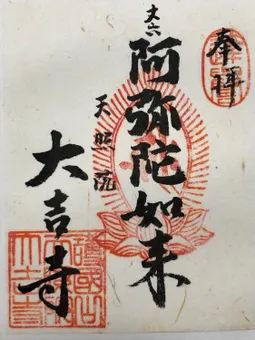 奉拝
丈六
阿弥陀如来
天照流
大吉寺